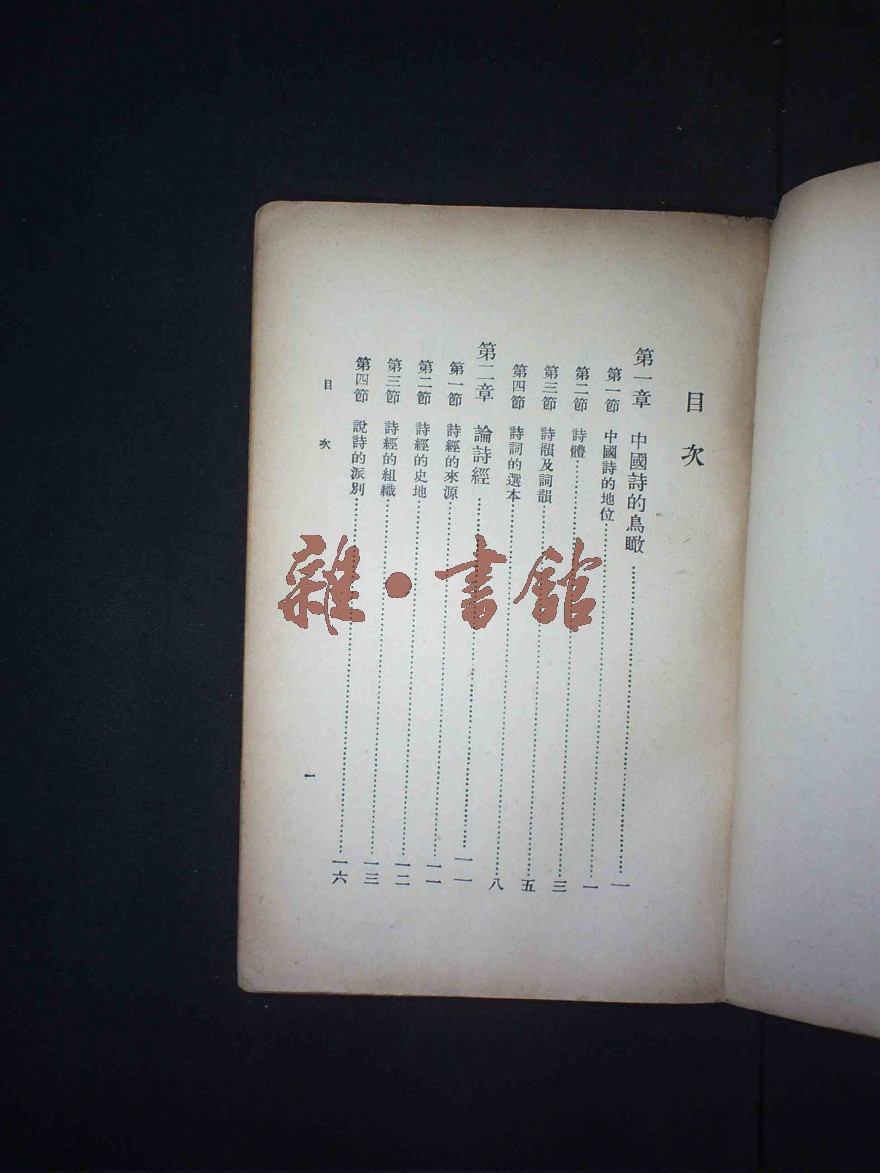 目次
第一章 中國詩的鳥瞰……一
第一節 中國詩的地位……一
第二節 詩體……三
第三節 詩韻及詞韻……五
第四節 詩詞的選本……八
第二章 論詩經……一一
第一節 詩經的來源……一一
第二節 詩經的史地……一二
第三節 詩經的組織……一三
第四節 說詩的派別……一六
目次
一
雜·書館